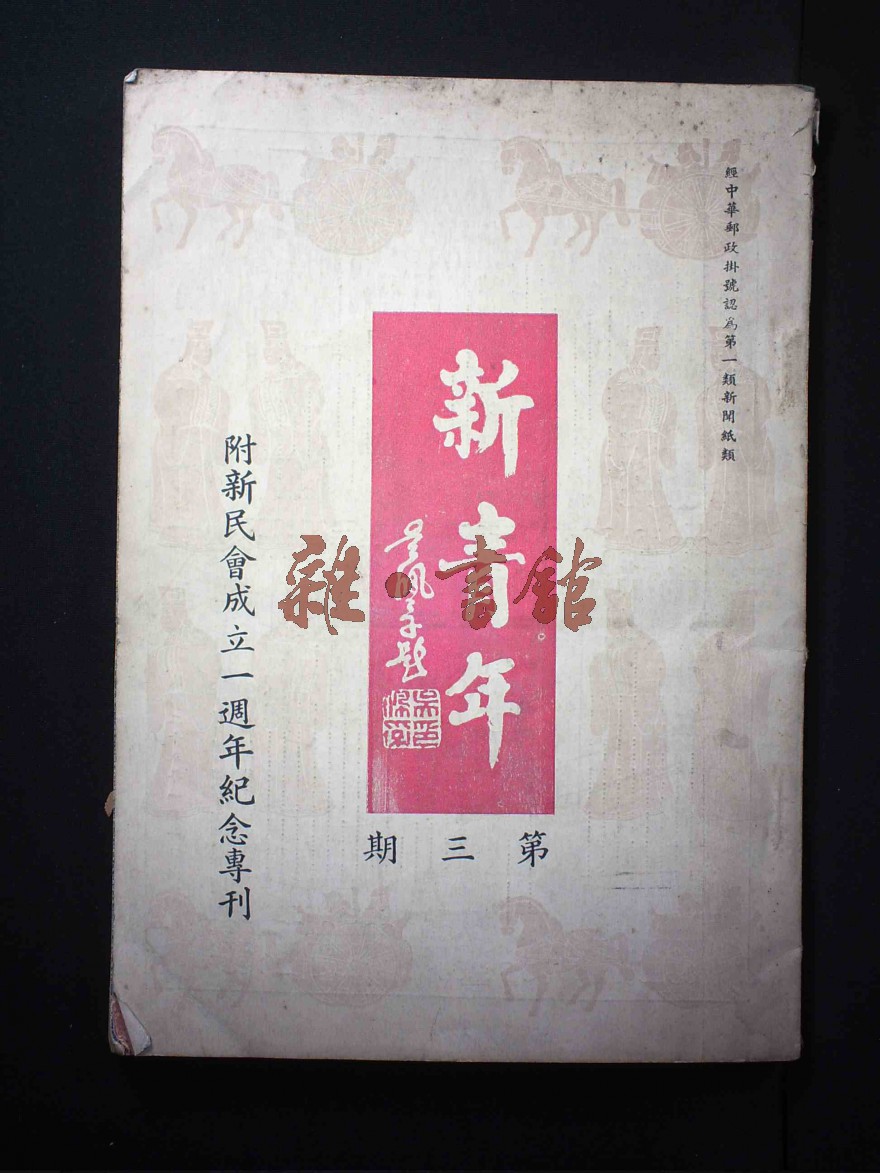 經中華郵政掛號認爲第一類新聞紙類
新青年
第三期
附新民會成立一週年紀念專刊
雜·書館